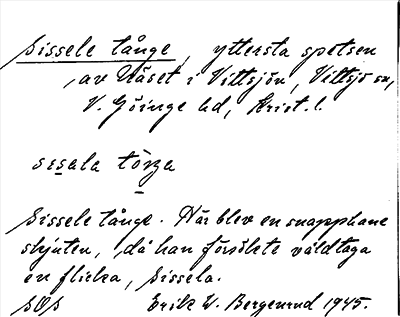 Sissele tånge, yttersta spetsen
av Näset i Vittsjön, Vittsjö sn,
V. Göinge hd, Krist. l.
sısala tåŋa
Sissele tånge. Här blev en snapphane
skjuten, då han försökte våldtaga
en flicka, Sissela.
SOS Erik W. Bergenrud 1945.